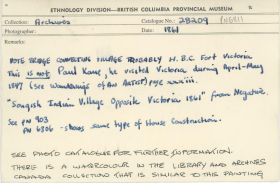 ETHNOLOGY DIVISION—BRITISH COLUMBIA PROVINCIAL MUSEUM
Collection: Archives Catalogue No.: 28209 PN6811
Photographer: Date: 1861
Remarks:
NOTE BRIDGE CONNECTING VILLAGE PROBABLY H.B.C. Fort Victoria
This is not Paul Kane, he visited Victoria during April-May
1847 (see Wanderings of An Artist) page xxxiii.
"Songish Indian Village Opposite Victoria 1861" from Negative.
See PN 903
PN 6806 - shows same type of House Construction.
SEE PHOTO CATALOGUE FOR FURTHER INFORMATION.
THERE IS A WATERCOLOUR IN THE LIBRARY AND ARCHIVES
CANADA COLLECTION THAT IS SIMILAR TO THIS